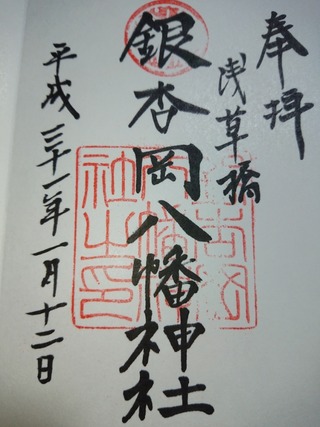 奉拝
浅草橋
銀杏岡八幡神社
平成三十一年一月十二日